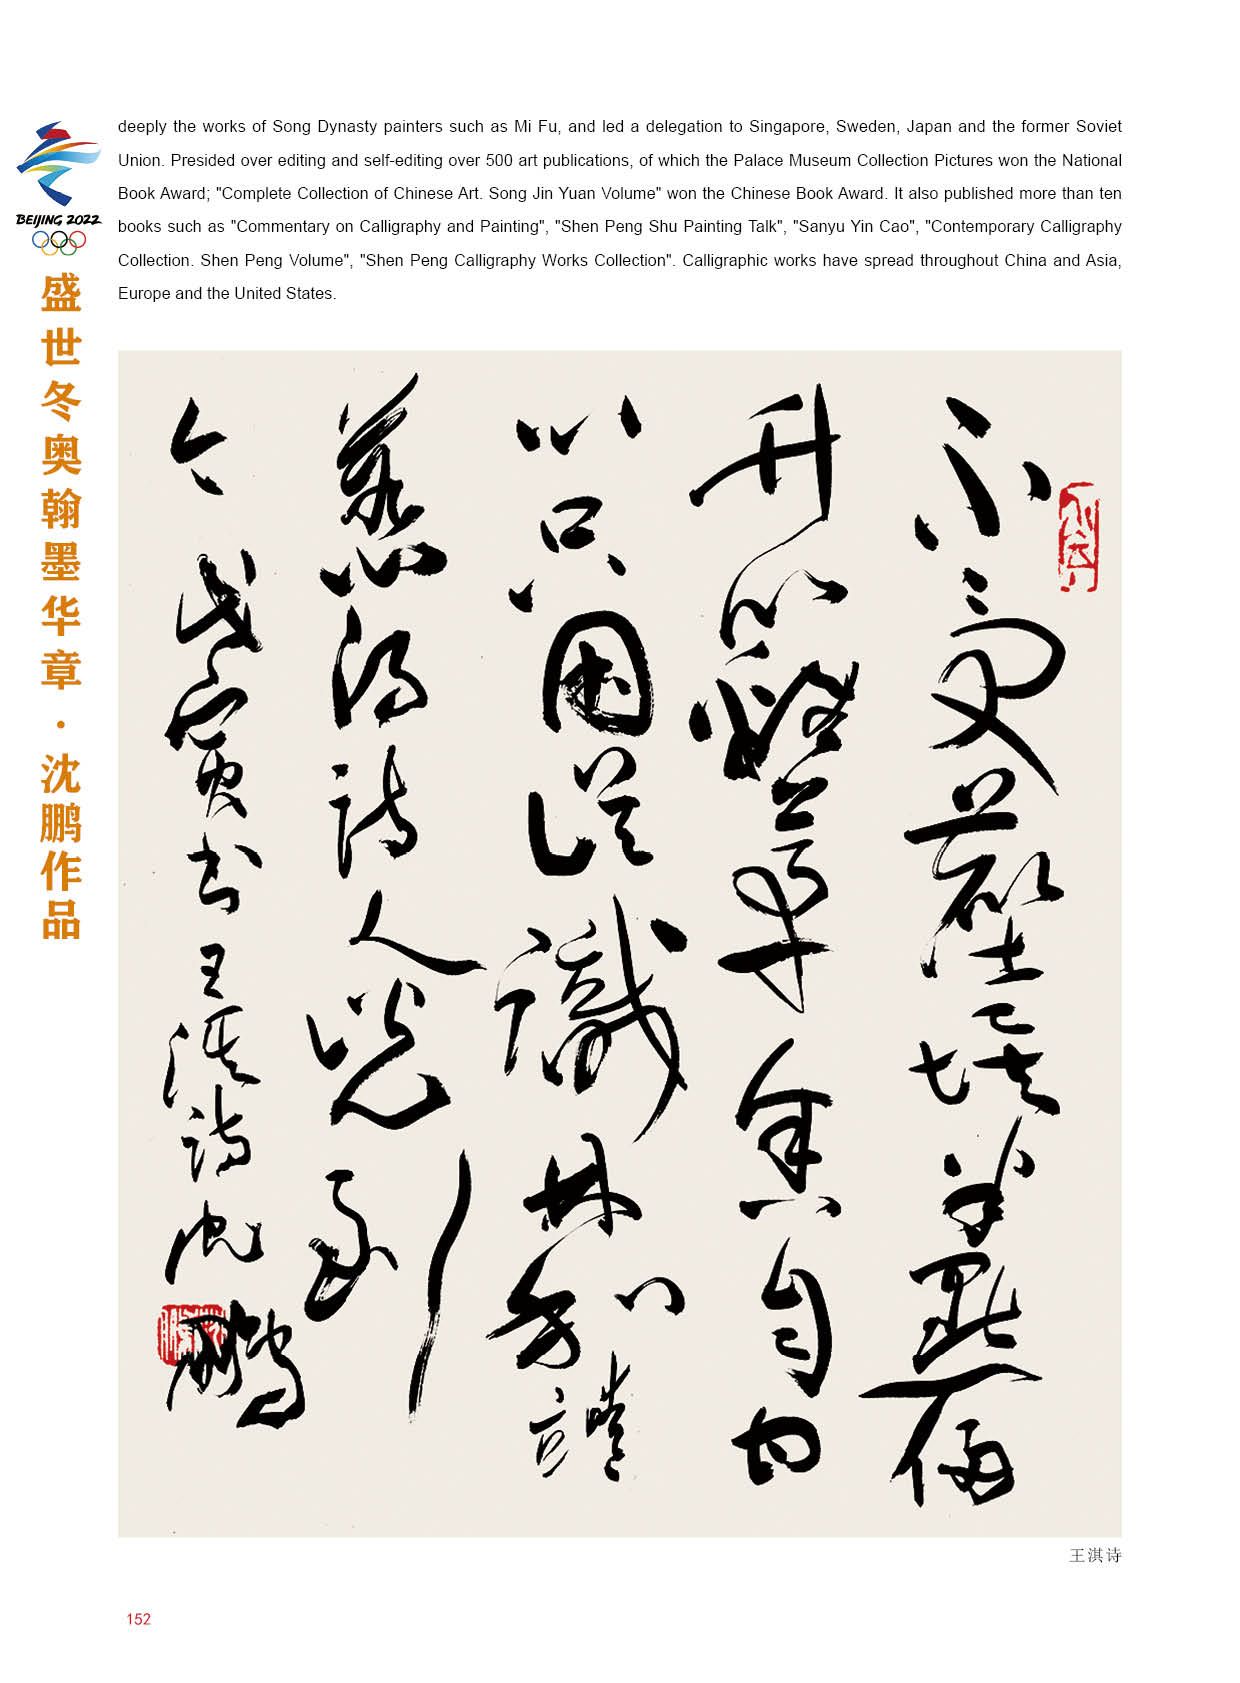 deeply the works of Song Dynasty painters such as Mi Fu, and led a delegation to Singapore, Sweden, Japan and the former Soviet
Union. Presided over editing and self-editing over 500 art publications, of which the Palace Museum Collection Pictures won the National
Book Award; "Complete Collection of Chinese Art. Song Jin Yuan Volume" won the Chinese Book Award. It also published more than ten
books such as "Commentary on Calligraphy and Painting", "Shen Peng Shu Painting Talk", "Sanyu Yin Cao", "Contemporary Calligraphy
Collection. Shen Peng Volume", "Shen Peng Calligraphy Works Collection". Calligraphic works have spread throughout China and Asia,
Europe and the United States.
BEIJING 2022
盛世冬奥翰墨华章·沈鹏作品
不受塵埃半點侵
竹籬茅舍自甘
心只因誤識林和靖
惹得詩人說到
今 戊寅书王淇詩沈鵬
王淇诗
152